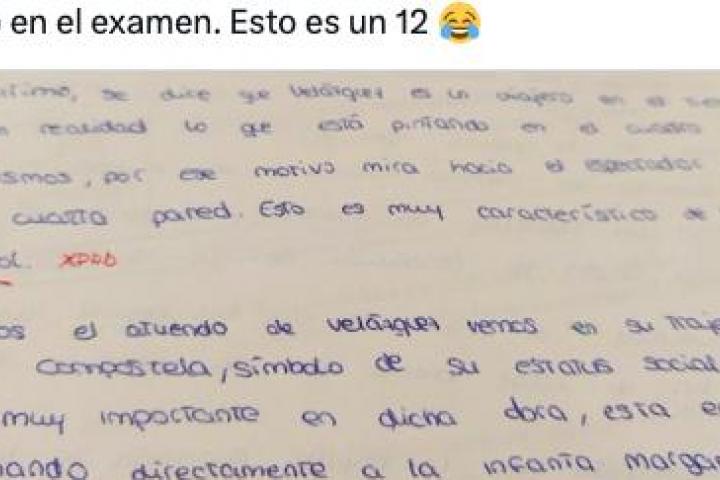 en el examen. Esto es un 12 😂
se dice qe Velázquez es un viajero en el
realidad lo qe está pintando en el cuadro
smos, por ese motivo mira hacia el espectador
cuarta pared. Esto es muy característico de
ol. XPAD
os el atuendo de Velázquez vemos en su traje
compostela, símbolo de su estatus social
muy importante en dicha obra, esta e
ando directamente a la infanta margar